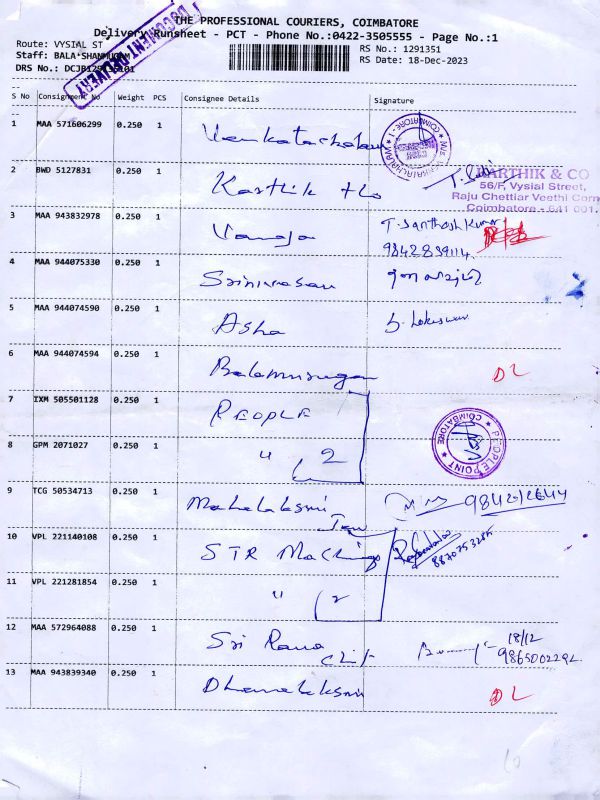 THE PROFESSIONAL COURIERS, COIMBATORE
Delivery Runsheet - PCT - Phone No.:0422-3505555 - Page No.:1
Route: VYSIAL ST
RS No.: 1291351
Staff: BALA*SHANMUGAM
RS Date: 18-Dec-2023
DRS No.:
DOCUMENT DELIVERY
S No Consignment No Weight PCS Consignee Details Signature
1 MAA 571606299 0.250 1 Venkatachalam
COIMBATORE - 1
2 BWD 5127831 0.250 1 Karthik &co
KARTHIK & CO
56/F, Vysial Street,
Raju Chettiar Veethi Corn
Coimbatore - 641 001.
3 MAA 943832978 0.250 1 Vanaja T. Santhosh Kumar
9842839114
4 MAA 944075330 0.250 1 Srinivasan
5 MAA 944074590 0.250 1 Asha S. Lokeswar
6 MAA 944074594 0.250 1 Balamurugan DL
7 IXM 505501128 0.250 1 PEOPLE
PEOPLE POINT
COIMBATORE
8 GPM 2071027 0.250 1 " 2
9 TCG 50534713 0.250 1 Mahalaksmi
10 VPL 221140108 0.250 1 STR
11 VPL 221281854 0.250 1 " 2
12 MAA 572964088 0.250 1 Sri Rama 18/12
9865002292
13 MAA 943839340 0.250 1 Dhanalaksmi DL